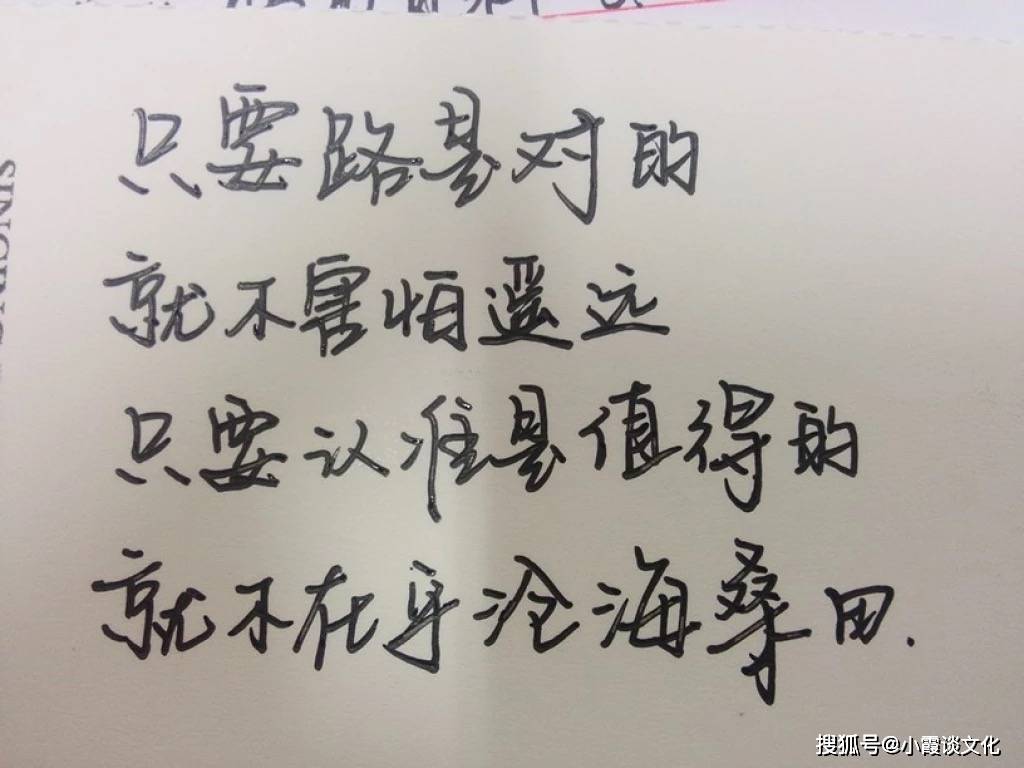 只要路是对的
就不害怕遥远
只要认准是值得的
就不在乎沧海桑田.
SINGING
搜狐号@小霞谈文化